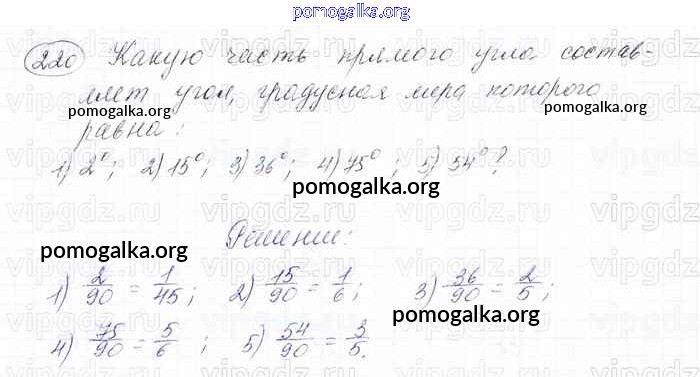 pomogalka.org
220 Какую часть прямого угла состав-
ляет угол, градусная мера которого
pomogalka.org pomogalka.org
равна:
1) 2°; 2) 15°; 3) 36°; 4) 75°; 5) 54°?
pomogalka.org
Решение:
pomogalka.org
1) 2/90 = 1/45; 2) 15/90 = 1/6; 3) 36/90 = 2/5;
pomogalka.org
4) 75/90 = 5/6; 5) 54/90 = 3/5.
pomogalka.org